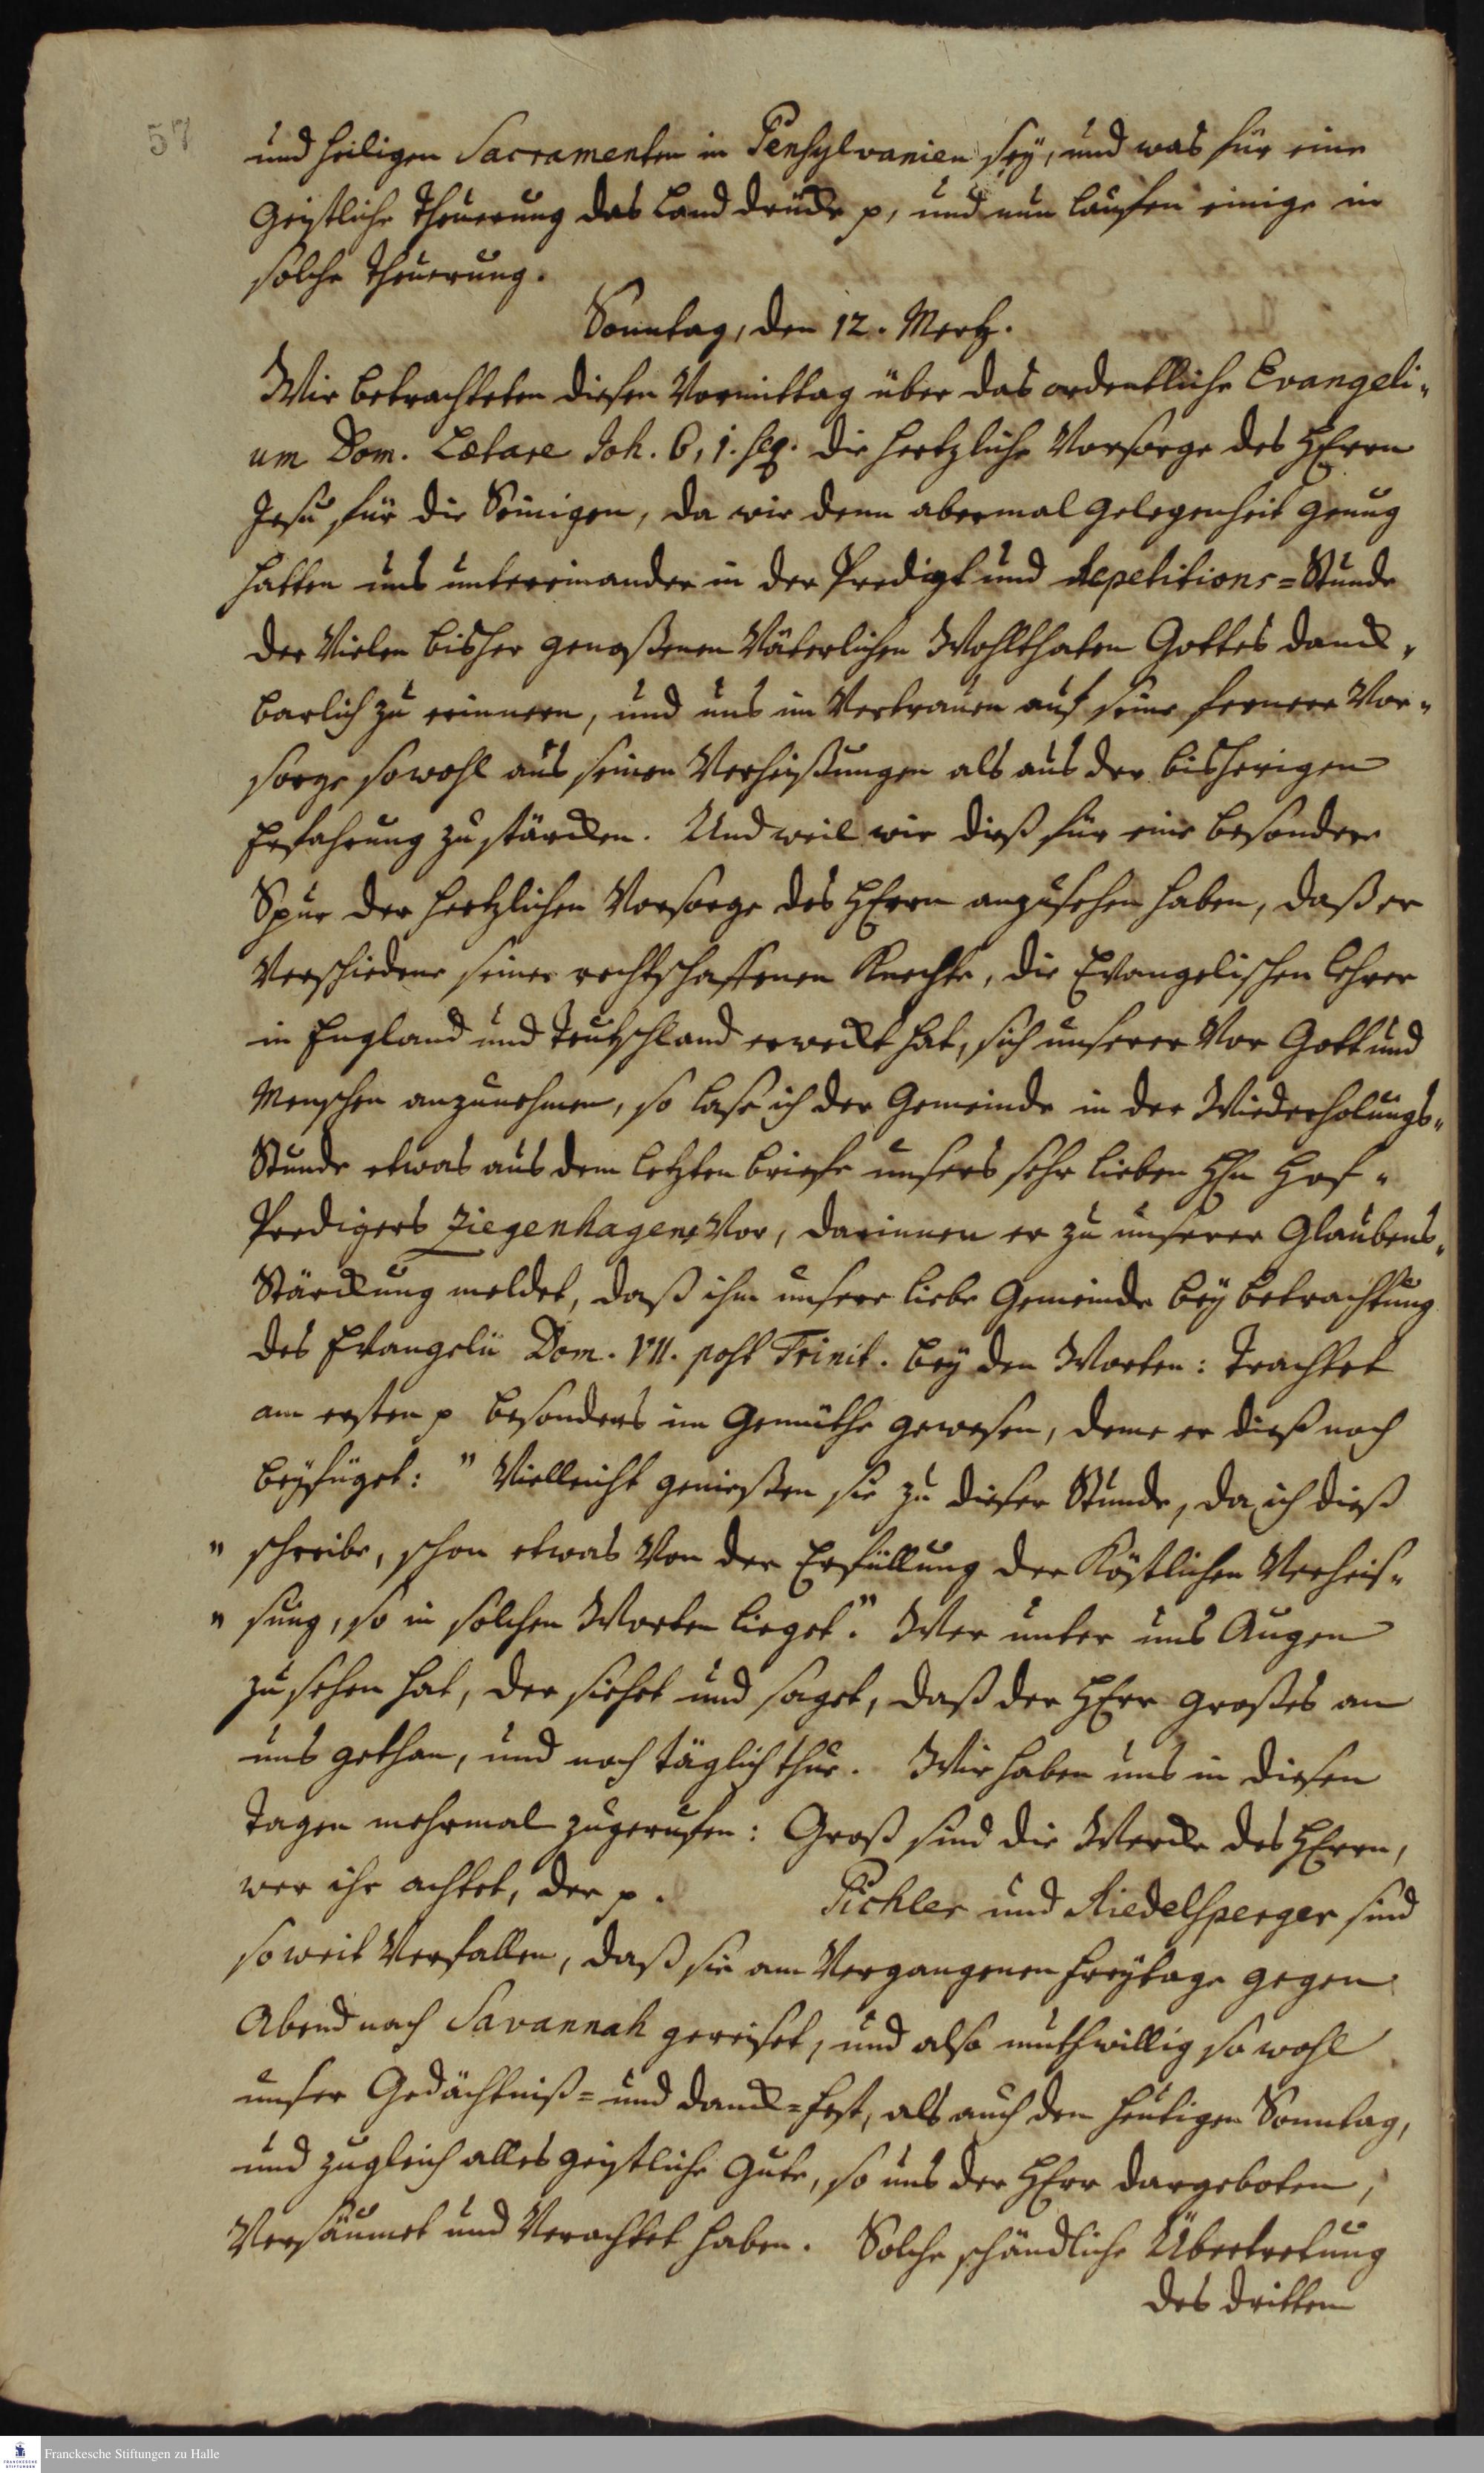 57
und heiligen Sacramenten in Pensylvanien sey, und was für eine
Geistliche Theuerung das Land drücke p, und nun lauffen einige in
solche Theuerung.
Sonntag, den 12. Mertz.
Wir betrachteten diesen Vormittag über das ordentliche Evangeli„
um Dom. Lætare Joh. 6, 1. seq. die hertzliche Vorsorge des HErrn
Jesu für die Seinigen, da wir denn abermal Gelegenheit genug
hatten uns untereinander in der Predigt und Repetitions=Stunde
der Vielen bisher genoßenen Väterlichen Wohlthaten Gottes danck„
barlich zu erinnern, und uns im Vertrauen auf seine fernere Vor„
sorge sowohl aus seinen Verheißungen als aus der bisherigen
Erfahrung zu stärcken. Und weil wir dieß für eine besondere
Spur der hertzlichen Vorsorge des HErrn anzusehen haben, daß er
Verschiedene seiner rechtschaffenen Knechte, die Evangelischen Lehrer
in England und Teutschland erweckt hat, sich unserer Vor Gott und
Menschen anzunehmen, so lase ich der Gemeinde in der Wiederholungs„
Stunde etwas aus dem letzten Briefe unsers sehr lieben Hn Hof„
Predigers Ziegenhagens Vor, darinnen er zu unserer Glaubens„
Stärckung meldet, daß ihm unsere liebe Gemeinde bey Betrachtung
des Evangelii Dom. VII. post Trinit. bey den Worten: Trachtet
am ersten p besonders im Gemüthe gewesen, deme er dieß noch
beyfüget: " Vielleicht genießen sie zu dieser Stunde, da ich dieß
" schreibe, schon etwas Von der Erfüllung der Köstlichen Verheis„
" sung, so in solchen Worten lieget." Wer unter uns Augen
zu sehen hat, der siehet und saget, daß der HErr großes an
uns gethan, und noch täglich thue. Wir haben uns in diesen
Tagen mehrmal zugerufen: Groß sind die Wercke des HErrn,
wer ihr achtet, der p. Pichler und Riedelsperger sind
so weit Verfallen, daß sie am Vergangenen Freytage gegen
Abend nach Savannah gereiset, und also muthwillig so wohl
unser Gedächtniß= und Danck=Fest, als auch den heutigen Sonntag,
und zugleich alles geistliche Gute, so uns der HErr dargeboten,
Versäumet und Verachtet haben. Solche schändliche Übertretung
des dritten
Franckesche Stiftungen zu Halle
FRANCKESCHE
STIFTUNGEN